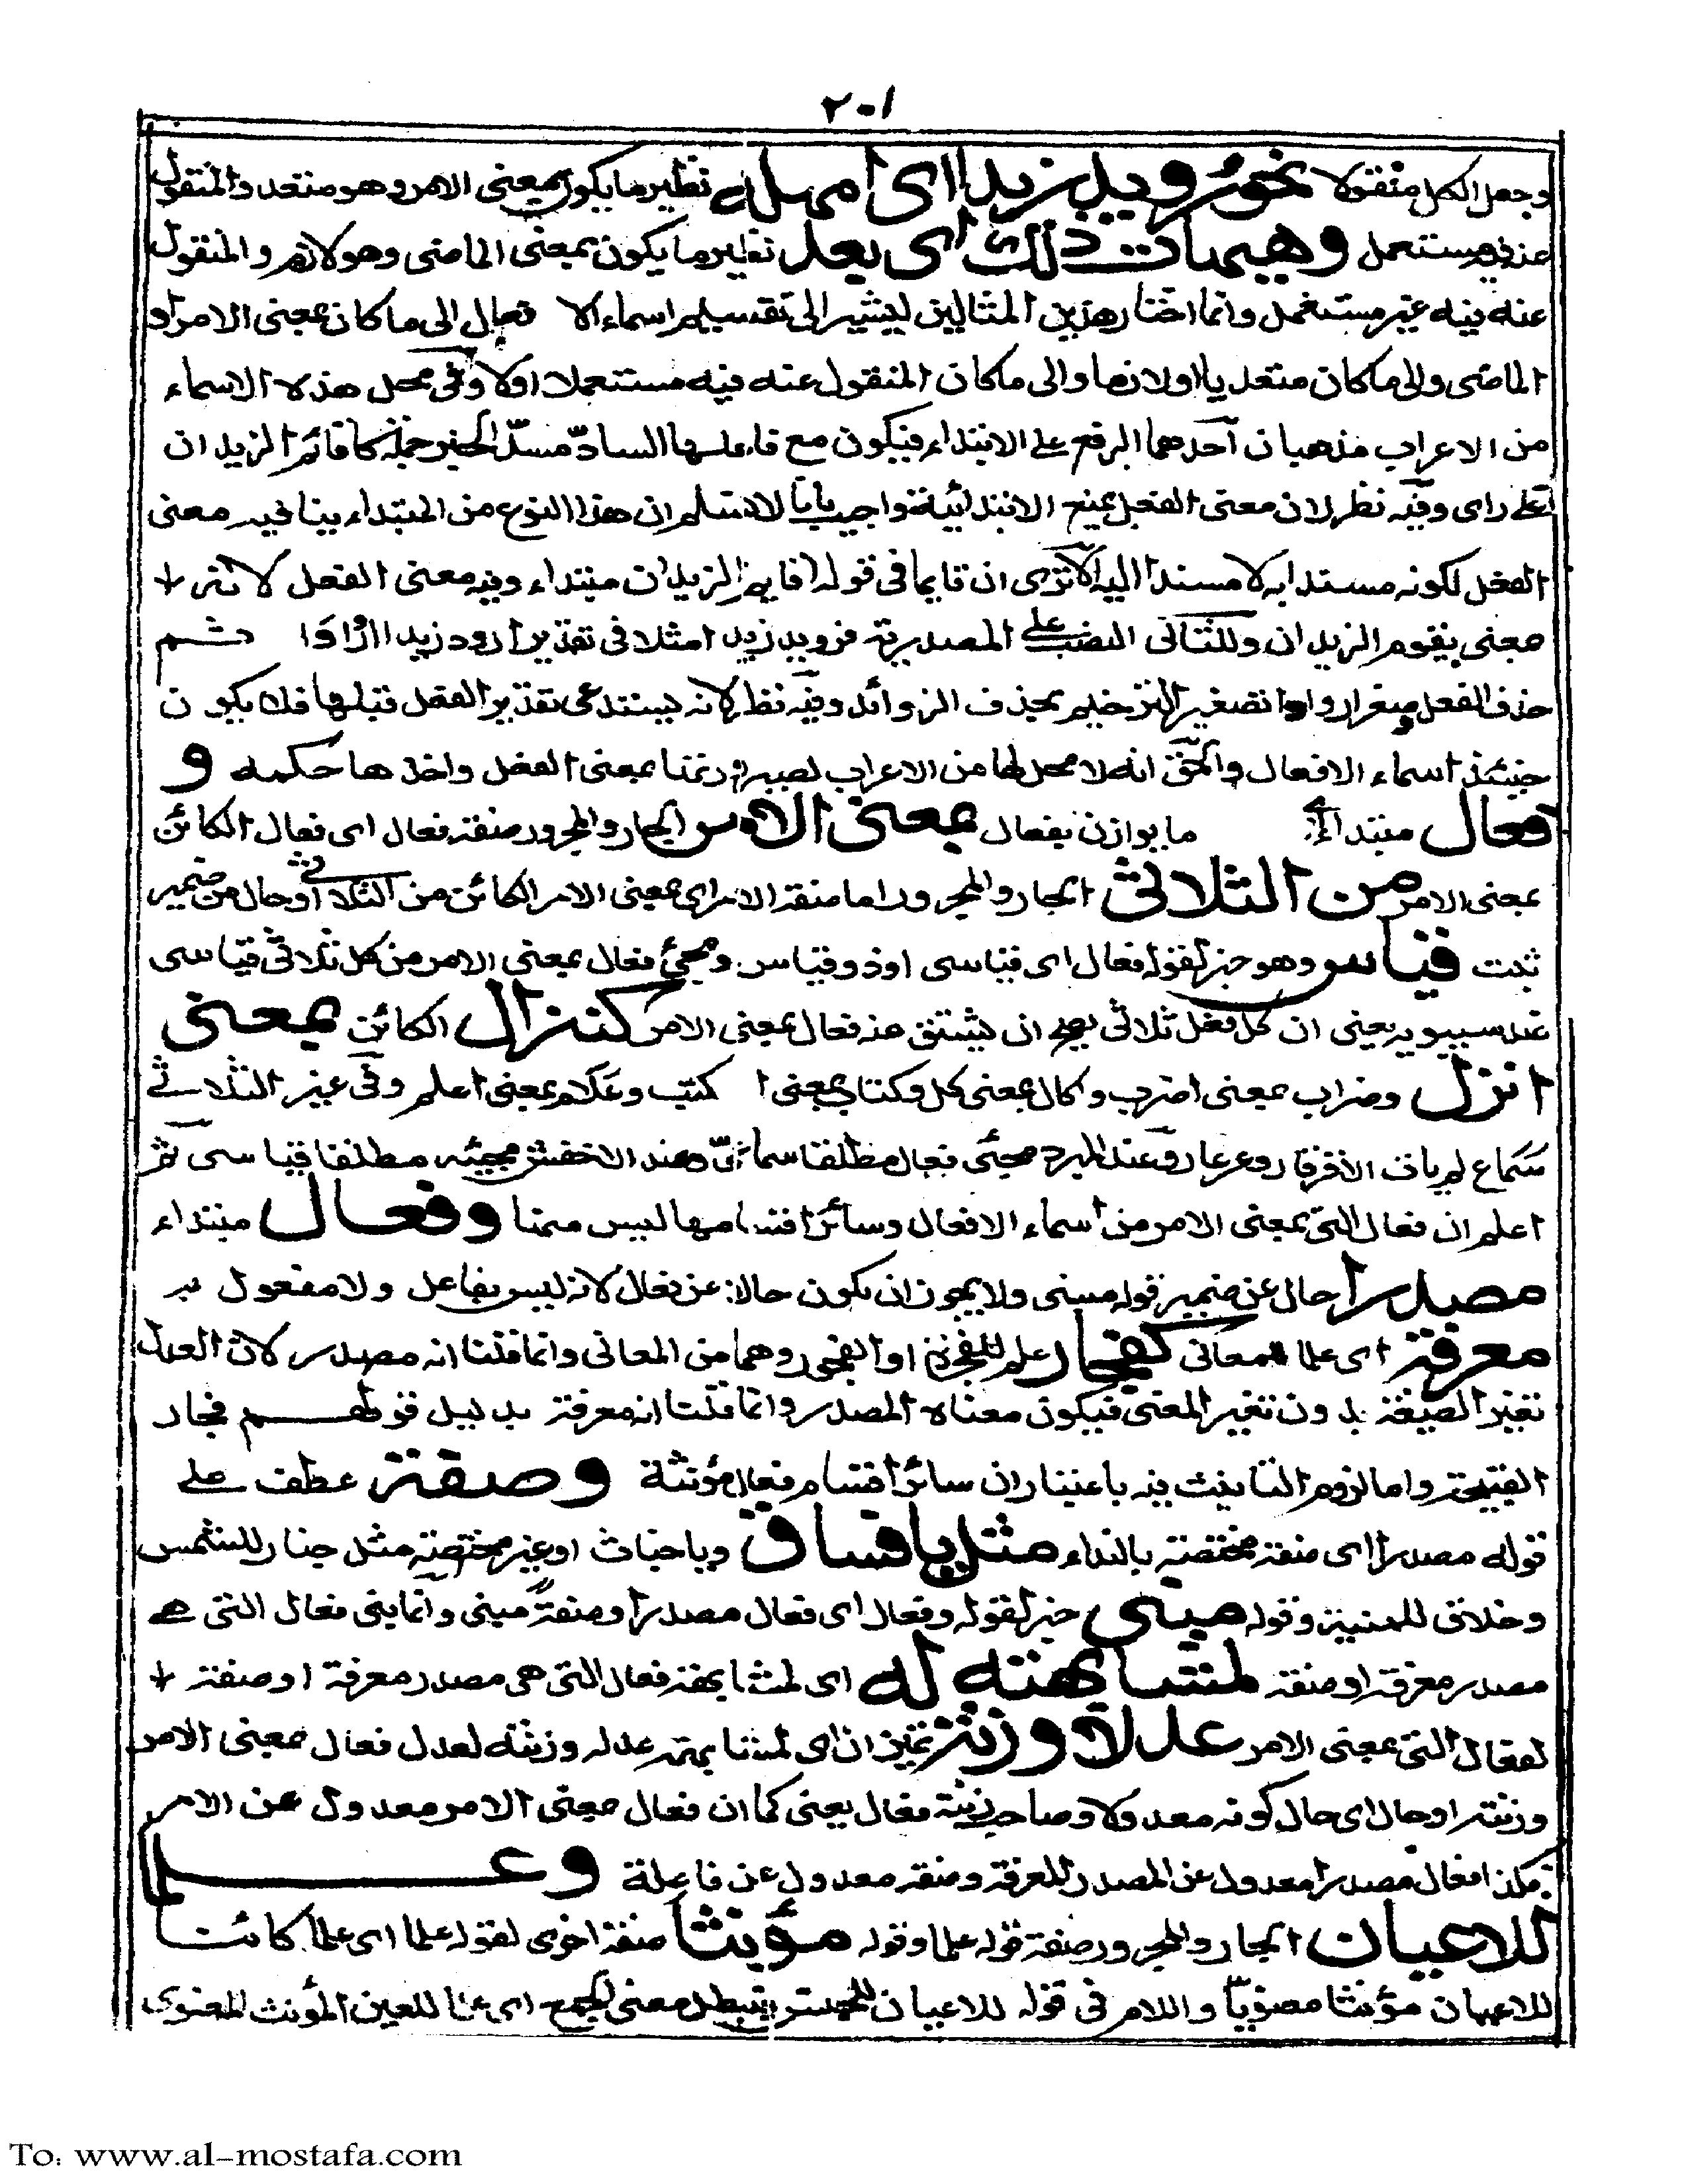 ٢٠١
وجعل الكل منقولا نحو رويد زيدا اى امهله نظير ما يكون بمعنى الامر وهو متعد والمنقول
عنه فيه مستعمل وهيهات ذلك اى بعد نظير ما يكون بمعنى الماضى وهو لازم والمنقول
عنه فيه غير مستعمل وانما اختار هذين المثالين ليشير الى تقسيم اسماء الا فعال الى ما كان بمعنى الامر او
الماضى والى ما كان متعديا او لازما والى ما كان المنقول عنه فيه مستعملا اولا وفى محل هذه الاسماء
من الاعراب مذهبان احدهما الرفع على الابتداء فيكون مع فاعلها الساد مسد الخبر جملة كاقائم الزيدان
على راى وفيه نظر لان معنى الفعل يمنع الابتدائية واجيب بانا لا نسلم ان هذا النوع من المبتداء ينافيه معنى
الفعل لكونه مسندا به لا مسندا اليه الا ترى ان قايما فى قوله اقايم الزيدان مبتداء وفيه معنى الفعل لانه
بمعنى يقوم الزيدان والثانى النصب على المصدرية فرويد زيد امثلا فى تقدير ارود زيدا اروادا ثم
حذف الفعل وصغر اروادا تصغير الترخيم بحذف الزوائد وفيه نظر لانه يستدعى تقدير الفعل قبلها فلا يكون
حينئذ اسماء الافعال والحق انه لا محل لها من الاعراب لصيرورتها بمعنى الفعل واخذها حكمه و
فعال مبتداء اى ما يوازن بفعال بمعنى الامر الجار والمجرور صفة فعال اى فعال الكائن
بمعنى الامر من الثلاثى الجار والمجرور اما صفة الامر اى بمعنى الامر الكائن من الثلاثى او حال من ضمير
ثبت قياس وهو خبر لقوله فعال اى قياسى او ذو قياس ومجئ فعال بمعنى الامر من كل ثلاثى قياسى
عند سيبويه يعنى ان كل فعل ثلاثى يصح ان يشتق منه فعال بمعنى الامر كنزال الكائن بمعنى
انزل وضراب بمعنى اضرب واكال بمعنى كل وكتاب بمعنى ا كتب وعلام بمعنى اعلم وفى غير الثلاثى
سماع لم يات الا قرقار وعرعار وعند المبرد مجئ فعال مطلقا سماعى وعند الاخفش مجيئه مطلقا قياسى ثم
اعلم ان فعال التى بمعنى الامر من اسماء الافعال وسائر اقسامها ليس منها وفعال مبتداء
مصدرا حال عن ضمير قوله مبنى ولا يجوز ان يكون حالا عن فعال لانه ليس بفاعل ولا مفعول به
معرفة اى علما للمعانى كفجار علم للفجرة او الفجور وهما من المعانى وانما قلنا انه مصدر لان العدل
تغير الصيغة بدون تغير المعنى فيكون معناه المصدر وانما قلنا انه معرفة بدليل قولهم فجار
القبيحة واما لزوم التانيث فيه باعتبار ان سائر اقسام فعال مؤنثة وصفة عطف على
قوله مصدرا اى صفة مختصة بالنداء مثل يا فساق ويا خباث او غير مختصة مثل جناز للشمس
وحلاق للمنية وقوله مبنى خبر لقوله وفعال اى فعال مصدرا وصفة مبنى وانما بنى فعال التى هى
مصدر معرفة او صفة لمشابهته له اى لمشابهة فعال التى هى مصدر معرفة او صفة
لفعال التى بمعنى الامر عدلا وزنة تميزان اى لمشابهة عدله وزنته لعدل فعال بمعنى الامر
وزنته او حال اى حال كونه معدولا وصاحب زنة فعال يعنى كما ان فعال بمعنى الامر معدول عن الامر
فكذا فعال مصدرا معدول عن المصدر المعرفة وصفة معدول عن فاعلة وعلما
للاعيان الجار والمجرور صفة قوله علما وقوله مؤنثا صفة اخرى لقوله علما اى علما كائنا
للاعيان مؤنثا معنويا واللام فى قوله للاعيان للجنس فيبطل معنى الجمع اى علما للعين المؤنث المعنوى
To: www.al-mostafa.com